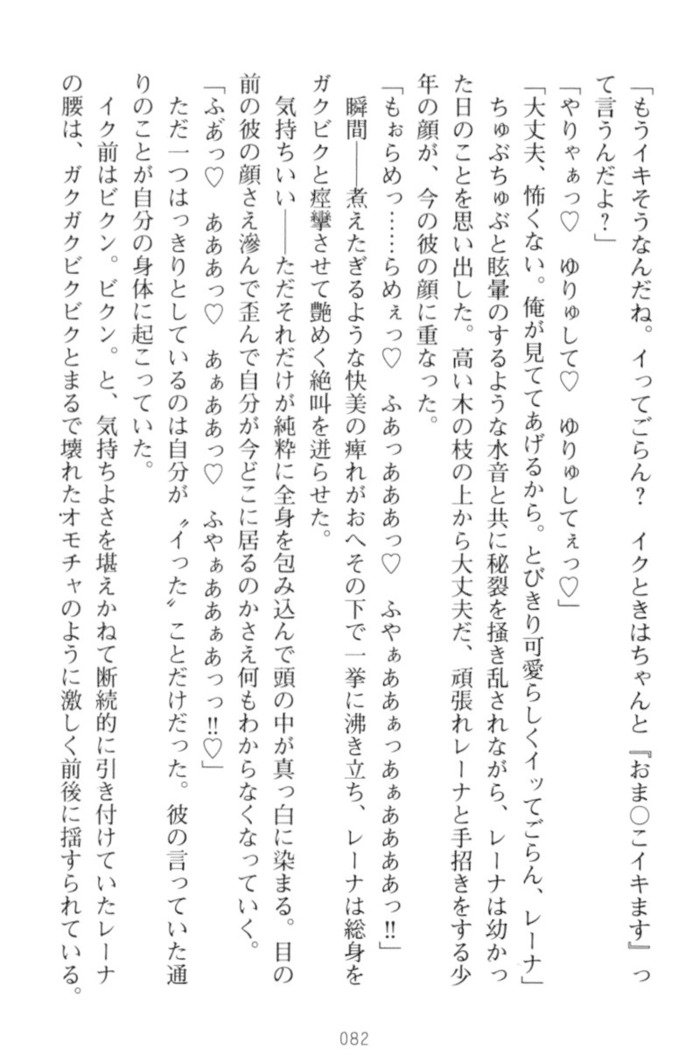 「もうイキそうなんだね。イってごらん？　イクときはちゃんと『おま○こイキます』っ
て言うんだよ？」
「やりゃぁっ♡　ゆりゅして♡　ゆりゅしてぇっ♡」
「大丈夫、怖くない。俺が見ててあげるから。とびきり可愛らしくイッてごらん、レーナ」
　ちゅぶちゅぶと眩暈のするような水音と共に秘裂を掻き乱されながら、レーナは幼かっ
た日のことを思い出した。高い木の枝の上から大丈夫だ、頑張れレーナと手招きをする少
年の顔が、今の彼の顔に重なった。
「もぉらめっ……らめぇっ♡　ふあっあああっ♡　ふやぁああぁっあぁああああっ‼」
　瞬間――煮えたぎるような快美の痺れがおへその下で一挙に沸き立ち、レーナは総身を
ガクビクと痙攣させて艶めく絶叫を迸らせた。
　気持ちいい――ただそれだけが純粋に全身を包み込んで頭の中が真っ白に染まる。目の
前の彼の顔さえ滲んで歪んで自分が今どこに居るのかさえ何もわからなくなっていく。
「ふあ゛っ♡　あああっ♡　あぁああっ♡　ふやぁああぁあっっ‼♡」
　ただ一つはっきりとしているのは自分が〝イった〟ことだけだった。彼の言っていた通
りのことが自分の身体に起こっていた。
　イク前はビクン。ビクン。と、気持ちよさを堪えかねて断続的に引き付けていたレーナ
の腰は、ガクガクビクビクとまるで壊れたオモチャのように激しく前後に揺すられている。
082